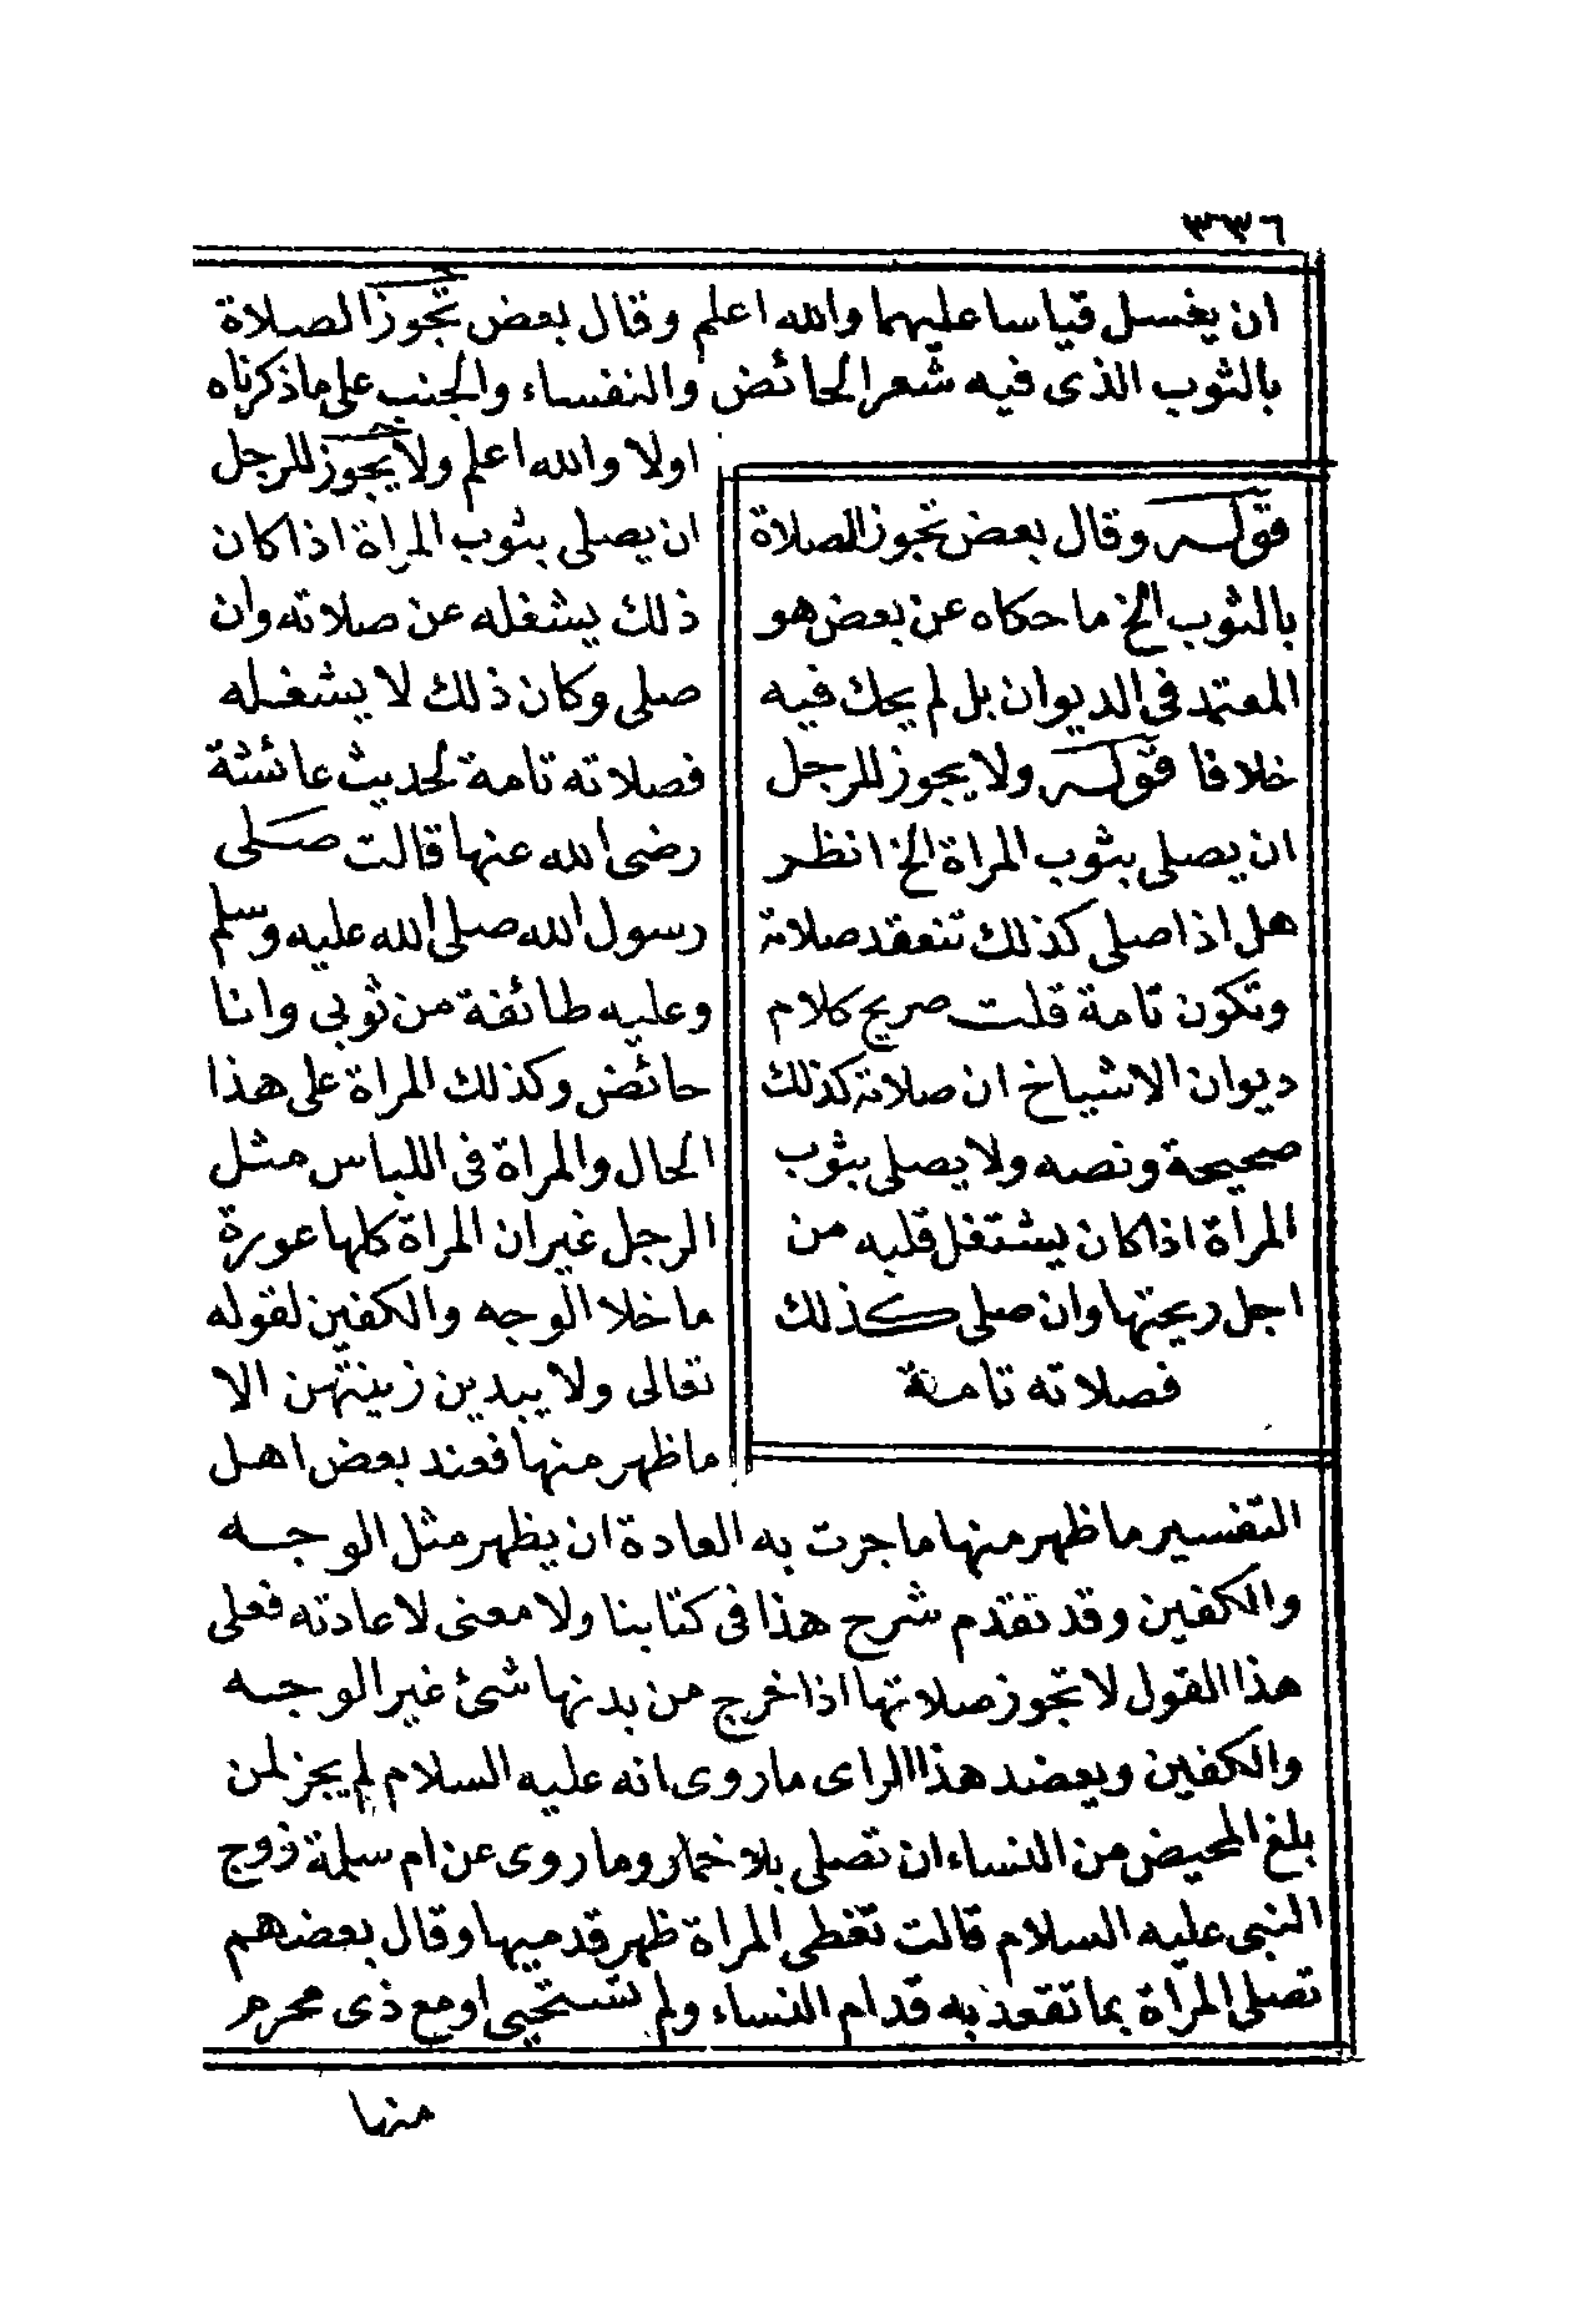 ٣٣٦
ان يغسل قياسا عليهما والله اعلم وقال بعض تجوز الصلاة
بالثوب الذى فيه شعر الحائض والنفساء والجنب على ماذكرناه
اولا والله اعلم ولا يجوز للرجل
ان يصلى بثوب المراة اذا كان
ذلك يشغله عن صلاته وان
صلى وكان ذلك لا يشغله
فصلاته تامة لحديث عائشة
رضى الله عنها قالت صلى
رسول الله صلى الله عليه وسلم
وعليه طائفة من ثوبى وانا
حائض وكذلك المراة على هذا
الحال والمراة فى اللباس مثل
الرجل غير ان المراة كلها عورة
ما خلا الوجه والكفين لقوله
تعالى ولا يبدين زينتهن الا
ما ظهر منها فعند بعض اهل
التفسير ما ظهر منها ما جرت به العادة ان يظهر مثل الوجه
والكفين وقد تقدم شرح هذا فى كتابنا ولا معنى لاعادته فعلى
هذا القول لا تجوز صلاتها اذا خرج من بدنها شئ غير الوجه
والكفين ويعضد هذا الراى ما روى انه عليه السلام لم يجز لمن
بلغ المحيض من النساء ان تصلى بلا خمار وما روى عن ام سلمة زوج
النبى عليه السلام قالت تغطى المراة ظهر قدميها وقال بعضهم
تصلى المراة بما تقعد به قدام النساء ولم تستحيى او مع ذى محرم
منها
قوله وقال بعض تجوز الصلاة
بالثوب الخ ما حكاه عن بعض هو
المعتمد فى الديوان بل لم يحك فيه
خلافا قوله ولا يجوز للرجل
ان يصلى بثوب المراة الخ انظر
هل اذا صلى كذلك تنعقد صلاته
وتكون تامة قلت صريح كلام
ديوان الاشياخ ان صلاته كذلك
صحيحة ونصه ولا يصلى بثوب
المراة اذا كان يشتغل قلبه من
اجل ريحتها وان صلى كذلك
فصلاته تامة